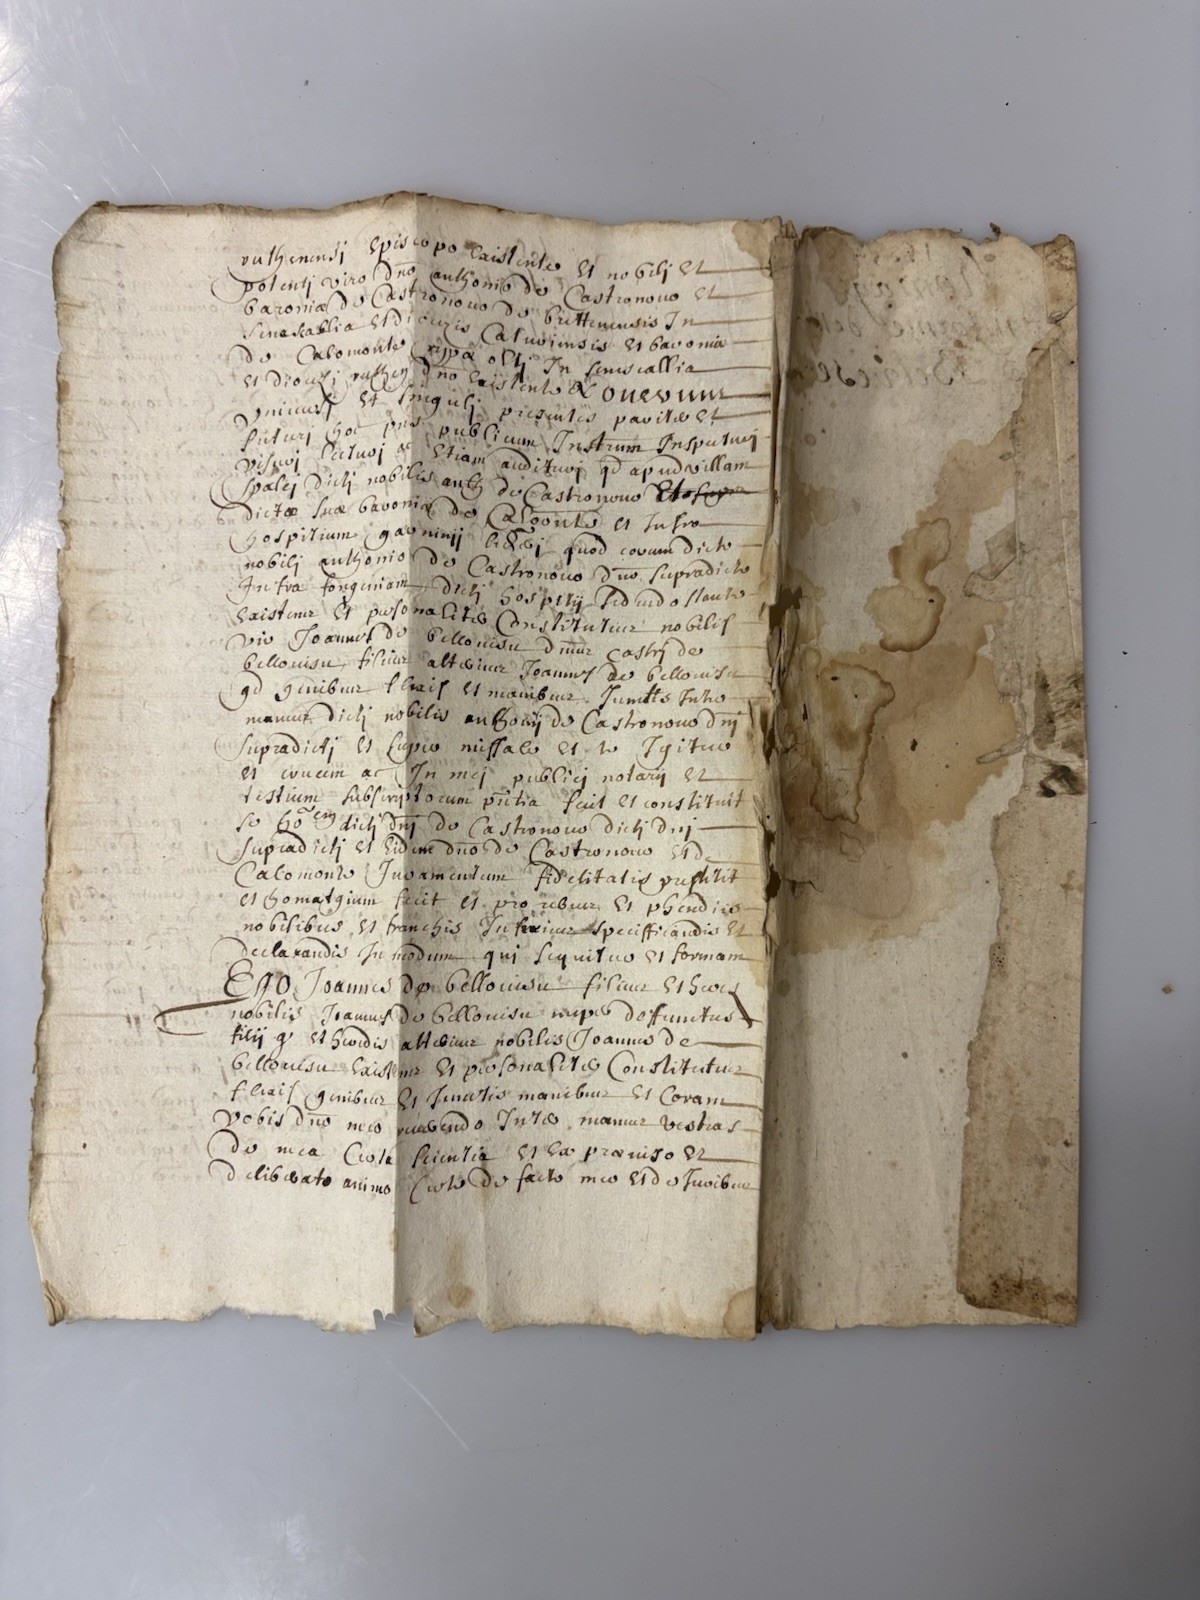 ruthenensj Episcopo Existente Et nobilj Et
potentj viro dno anthonio de Castronovo Et
baroniæ de Castronovo de brettenensis In
senescallia Et diocezis Caturcensis Et baronia
de Calomonte rippæ oltj In senescallia
Et diocesj ruthen dno Existente Noverunt
Vniversj Et singulj presentes pariter Et
futurj hoc pns publicum Instrum Inspecturj
visurj lecturj ac Etiam auditurj qd apud villam
spalej dictj nobilis anth de Castronovo
dictæ suæ baroniæ de Calomonte Et Infra
hospitium quod coram dicto
nobilj anthonio de Castronovo dno supradicto
Intra dictj hospitij sedendo stante
Existens Et personaliter Constitutus nobilis
vir Joannes de bellovisu dnus castrj de
bellovisu filius alterius Joannis de bellovisu
qd genibus flexis Et manibus Junctis Inter
manus dictj nobilis anthonij de Castronovo dnj
supradictj et super missale et te Igitur
et crucem ac In mej publicj notarij Et
testium subscriptorum pntia fecit et constituit
se hoem dictj dnj de Castronovo dictj dnj
supradictj et Eidem dno de Castronovo Et de
Calomonte Juramentum fidelitatis prestitit
et homatgium fecit et pro rebus Et phendis
nobilibus et franchis Inferius specifficandis Et
declarandis In modum qui sequitur et formam
Ego Joannes de bellovisu filius Et heres
nobilis Joannis de bellovisu nuper deffunctus
filij q Et heredis alterius nobilis Joannes de
bellovisu Existens Et personaliter Constitutus
flexis genibus Et Junctis manibus Et Coram
Vobis dno meo Inter manus vestras
de mea Certa scientia et Ex proviso Et
deliberato animo Certo de facto meo Et de Juribus